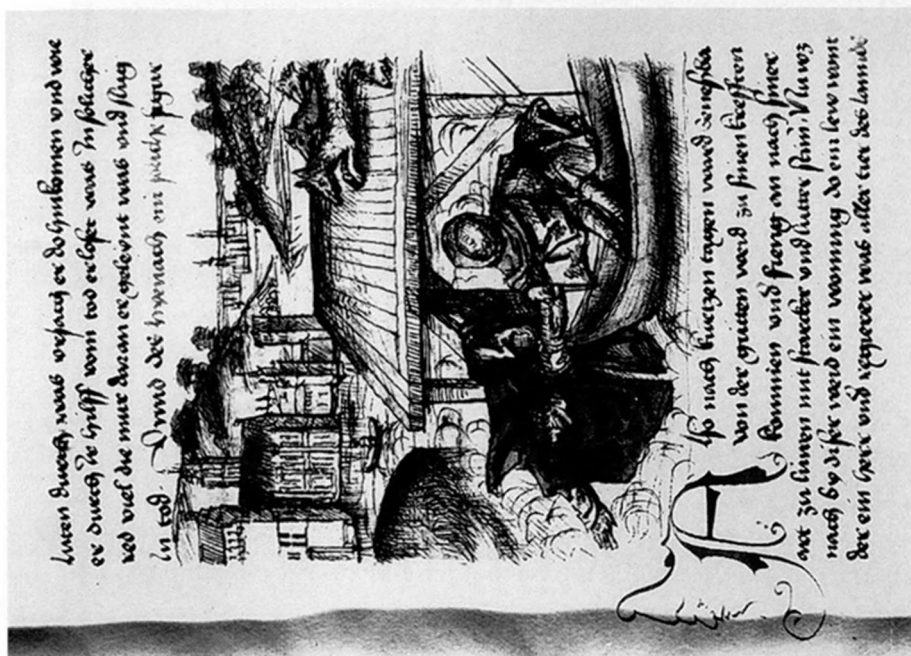 luren durch was ursach er do hinkomen und wie
er durch de hilff vom tod erlost was In solicher
red viel die mur daran er geleient was und slug
in tod · Unnd des hernach ein figur
Aso nach kurtzen tagen ward
von der grunen waid zu sinen kreften
komnien und fieng an nach siner
art zu lunen mit starcker und luter stim Nu waz
nach by diser waid ein wonung do ein lew wont
der ein herr und regierer was aller tier des lannds